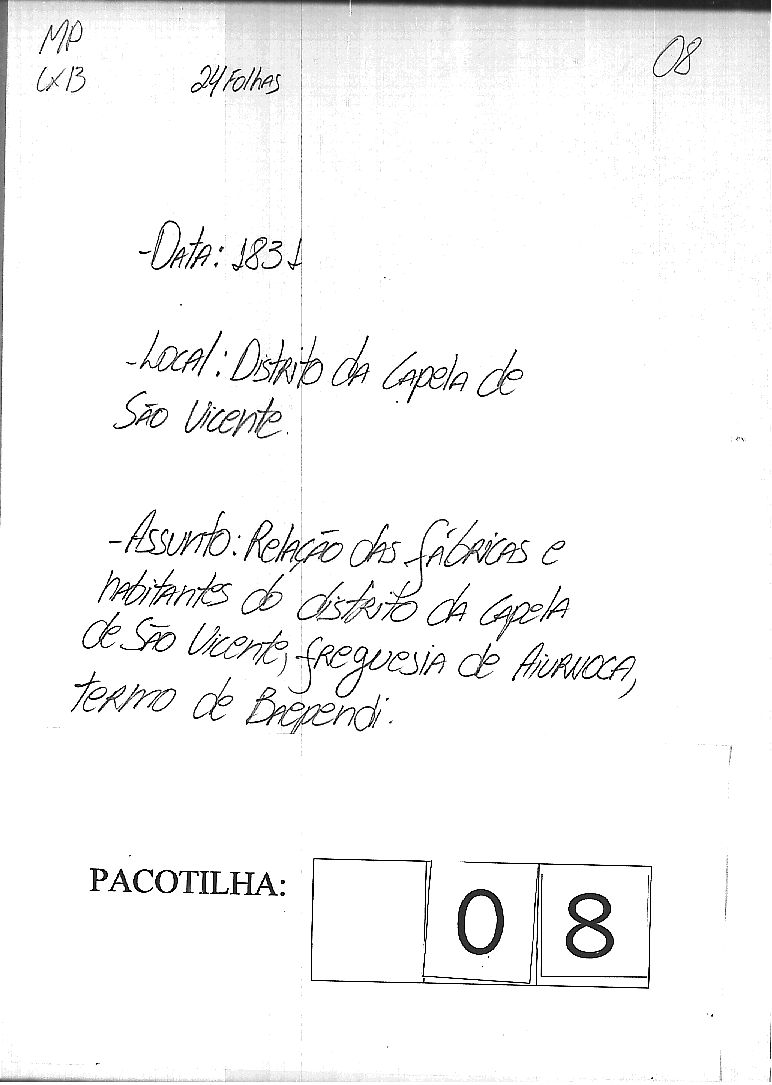 MP
CX 13 24 Folhas 08
-Data: 1831
-Local: Distrito da Capela de
São Vicente.
-Assunto: Relação das fábricas e
habitantes do distrito da Capela
de São Vicente, freguesia de Aiuruoca,
termo de Baependi.
PACOTILHA: 08